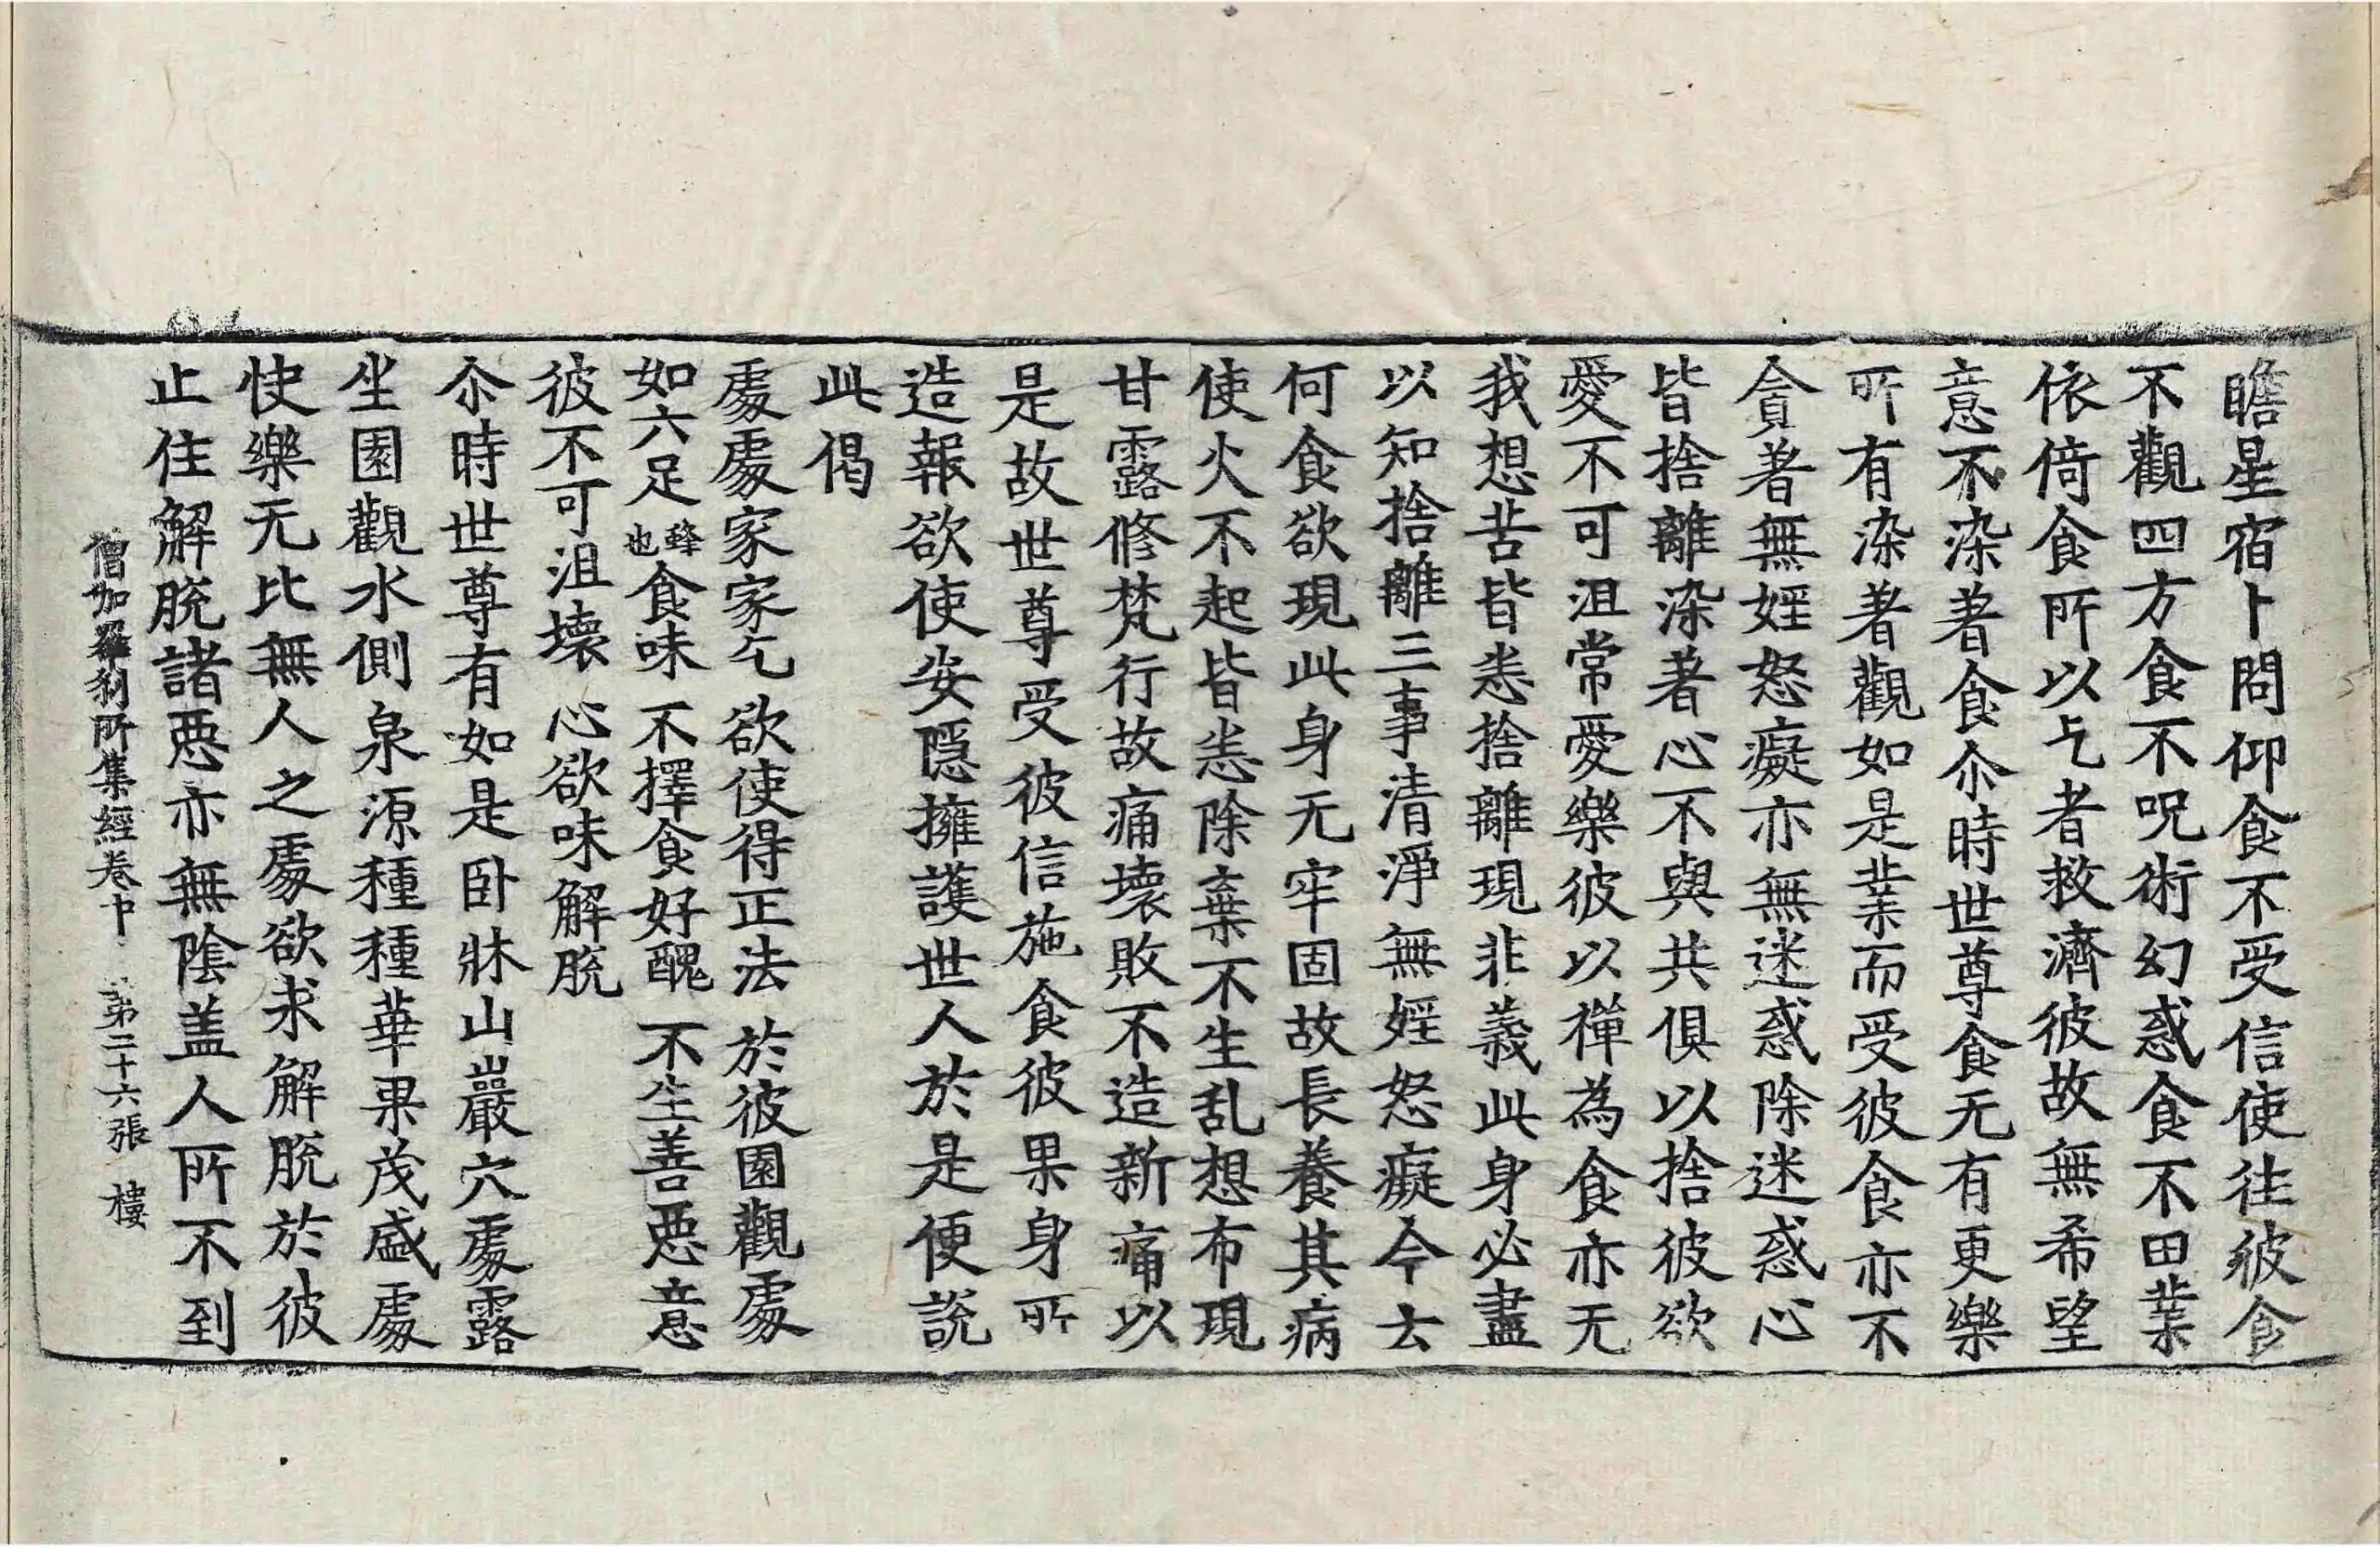 瞻星宿卜問仰食不受信使往彼食
不觀四方食不呪術幻惑食不田業
依倚食所以乞者救濟彼故無希望
意不染著食尒時世尊食无有更樂
所有染著觀如是業而受彼食亦不
貪著無婬怒癡亦無迷惑除迷惑心
皆捨離染著心不與共俱以捨彼欲
愛不可沮常愛樂彼以禪為食亦无
我想苦皆悉捨離現非義此身必盡
以知捨離三事清淨無婬怒癡今去
何食欲現此身无牢固故長養其病
使火不起皆悉除棄不生乱想布現
甘露修梵行故痛壞敗不造新痛以
是故世尊受彼信施食彼果身所
造報欲使安隱擁護世人於是便說
此偈
處處家家乞 欲使得正法 於彼園觀處
如六足蜂也食味 不擇食好醜 不生善惡意
彼不可沮壞 心欲味解脫
尒時世尊有如是卧牀山巖穴處露
坐園觀水側泉源種種華果茂盛處
快樂无比無人之處欲求解脫於彼
止住解脫諸惡亦無陰盖人所不到
僧伽羅刹所集經卷中 第二十六張 樓